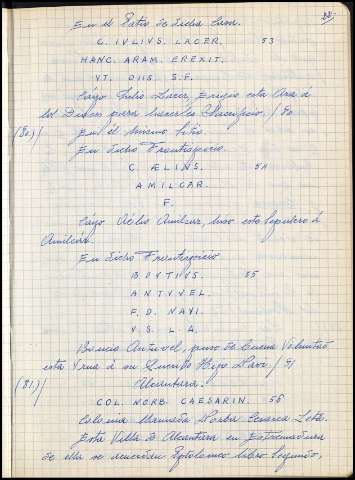 En el Patio de dicha Casa.
C. IVLIVS. LACER. 53
HANC. ARAM. EREXIT.
VT. DIIS. S.F.
Cayo Julio Lacer, erigio esta Ara á
los Dioses para hacerles Sacrificio. / 80
(80.) / En el mismo sitio.
En dicho Frontispicio.
C. ÆLINS. 54
AMILCAR.
F.
Cayo Aelio Amilcar, hizo este sepulcro á
Amilcar.
En dicho Frontispicio
BOVTIVS. 55
ANTVVEL.
F. D. NAVI.
V. S. L. A.
Boucio Antuvel, puso de buena Voluntad
esta á su Querido Hijo Navi. / 81
(81.) / Alcantara.
COL. NORB. CAESARIN. 56
Colonia llamada Norba Cesarea
Esta Villa de Alcantara en Estremadura
de ella se Ptolomeo libro segundo,